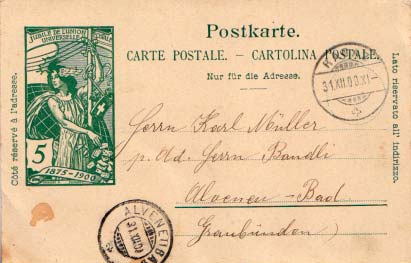 Postkarte.
CARTE POSTALE. - CARTOLINA POSTALE.
Nur für die Adresse.
JUBILÉ DE L'UNION
UNIVERSELLE
5
1875-1900
Côté réservé à l'adresse.
Lato riservato all' indirizzo.
31.XII.00.XI-
Herrn Karl Müller
p. Ad. Herrn Bandli
Alveneu-Bad
Graubünden)
ALVENEU BAD